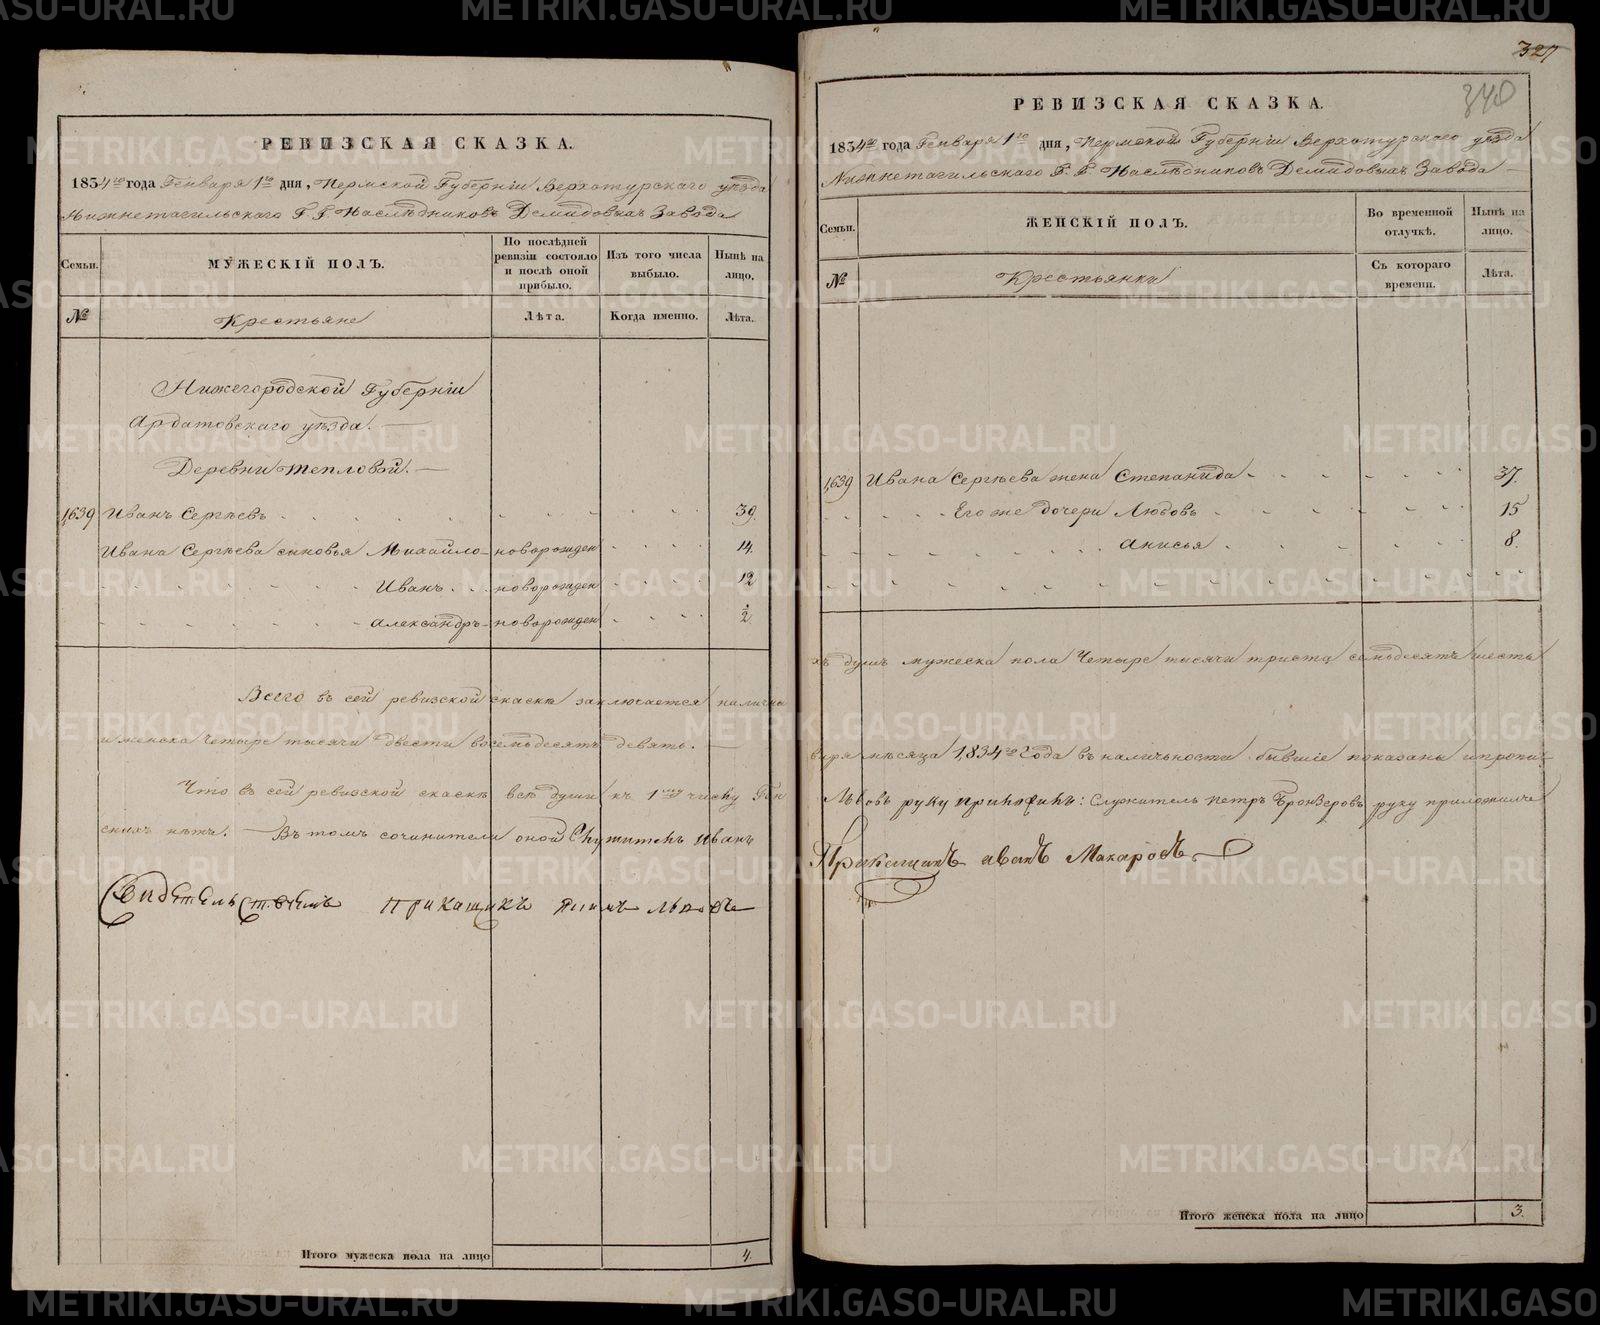 РЕВИЗСКАЯ СКАЗКА.
1834го года Генваря 1го дня, Пермской Губерніи Верхотурскаго уѣзда
Нижнетагильскаго Г. Г. Наслѣдниковъ Демидовыхъ Завода
Семьи.
МУЖЕСКІЙ ПОЛЪ.
По послѣдней ревизіи состояло и послѣ оной прибыло.
Изъ того числа выбыло.
Нынѣ на лицо.
№
Крестьяне
Лѣта.
Когда именно.
Лѣта.
Нижегородской Губерніи
Ардатовскаго уѣзда.
Деревни Тепловой.
1,639 Иванъ Сергѣевъ 39.
Ивана Сергѣева сыновья Михайло новорожден 14.
Иванъ новорожден 12
Александръ новорожден ½
Всего въ сей ревизской скаскѣ заключается наличны
и женска Четыре тысячи двести восемьдесятъ девять.
Что въ сей ревизской скаскѣ всѣ души къ 1му числу Ген
скихъ нѣтъ. Въ томъ сочинители оной Служитель Иванъ
Свидѣтельствовалъ прикащикъ Якимъ Львовъ
Итого мужеска пола на лицо 4.
327
340
РЕВИЗСКАЯ СКАЗКА.
1834го года Генваря 1го дня, Пермской Губерніи Верхотурскаго уѣзда
Нижнетагильскаго Г. Г. Наслѣдниковъ Демидовыхъ Завода
Семьи.
ЖЕНСКІЙ ПОЛЪ.
Во временной отлучкѣ.
Нынѣ на лицо.
№
Крестьянки
Съ котораго времени.
Лѣта.
1,639 Ивана Сергѣева жена Степанида 37.
Его же дочери Любовь 15
Анисья 8.
хъ душъ мужеска пола Четыре тысячи триста семьдесятъ шесть
варя мѣсяца 1,834го Года въ наличьности бывшіе показаны и пропи
Львовъ руку приложилъ: Служитель Петръ Бронзеровъ руку приложилъ
Прикащикъ Иванъ Макаровъ
Итого женска пола на лицо 3.
METRIKI.GASO-URAL.RU